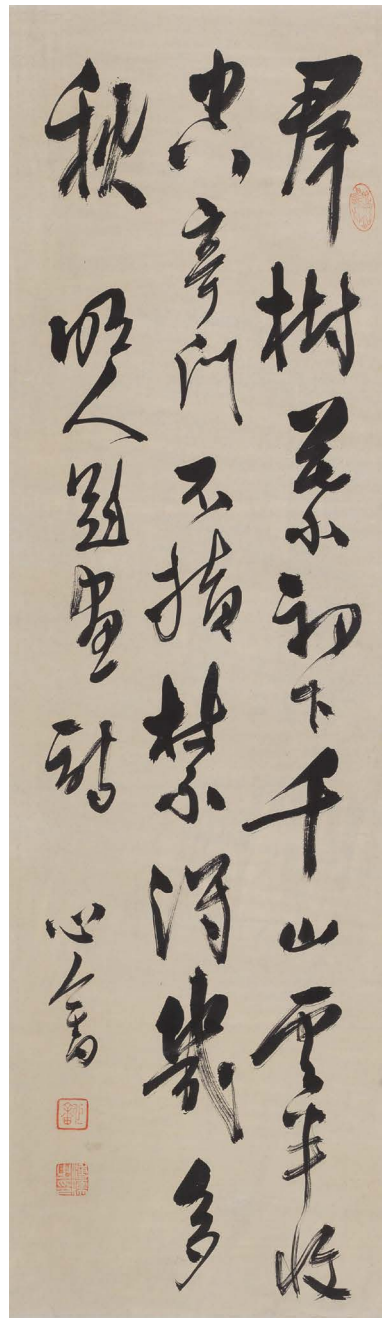 群樹葉初下千山雲半收
空亭門不掩禁得幾多
秋 明人題畫詩 心畬